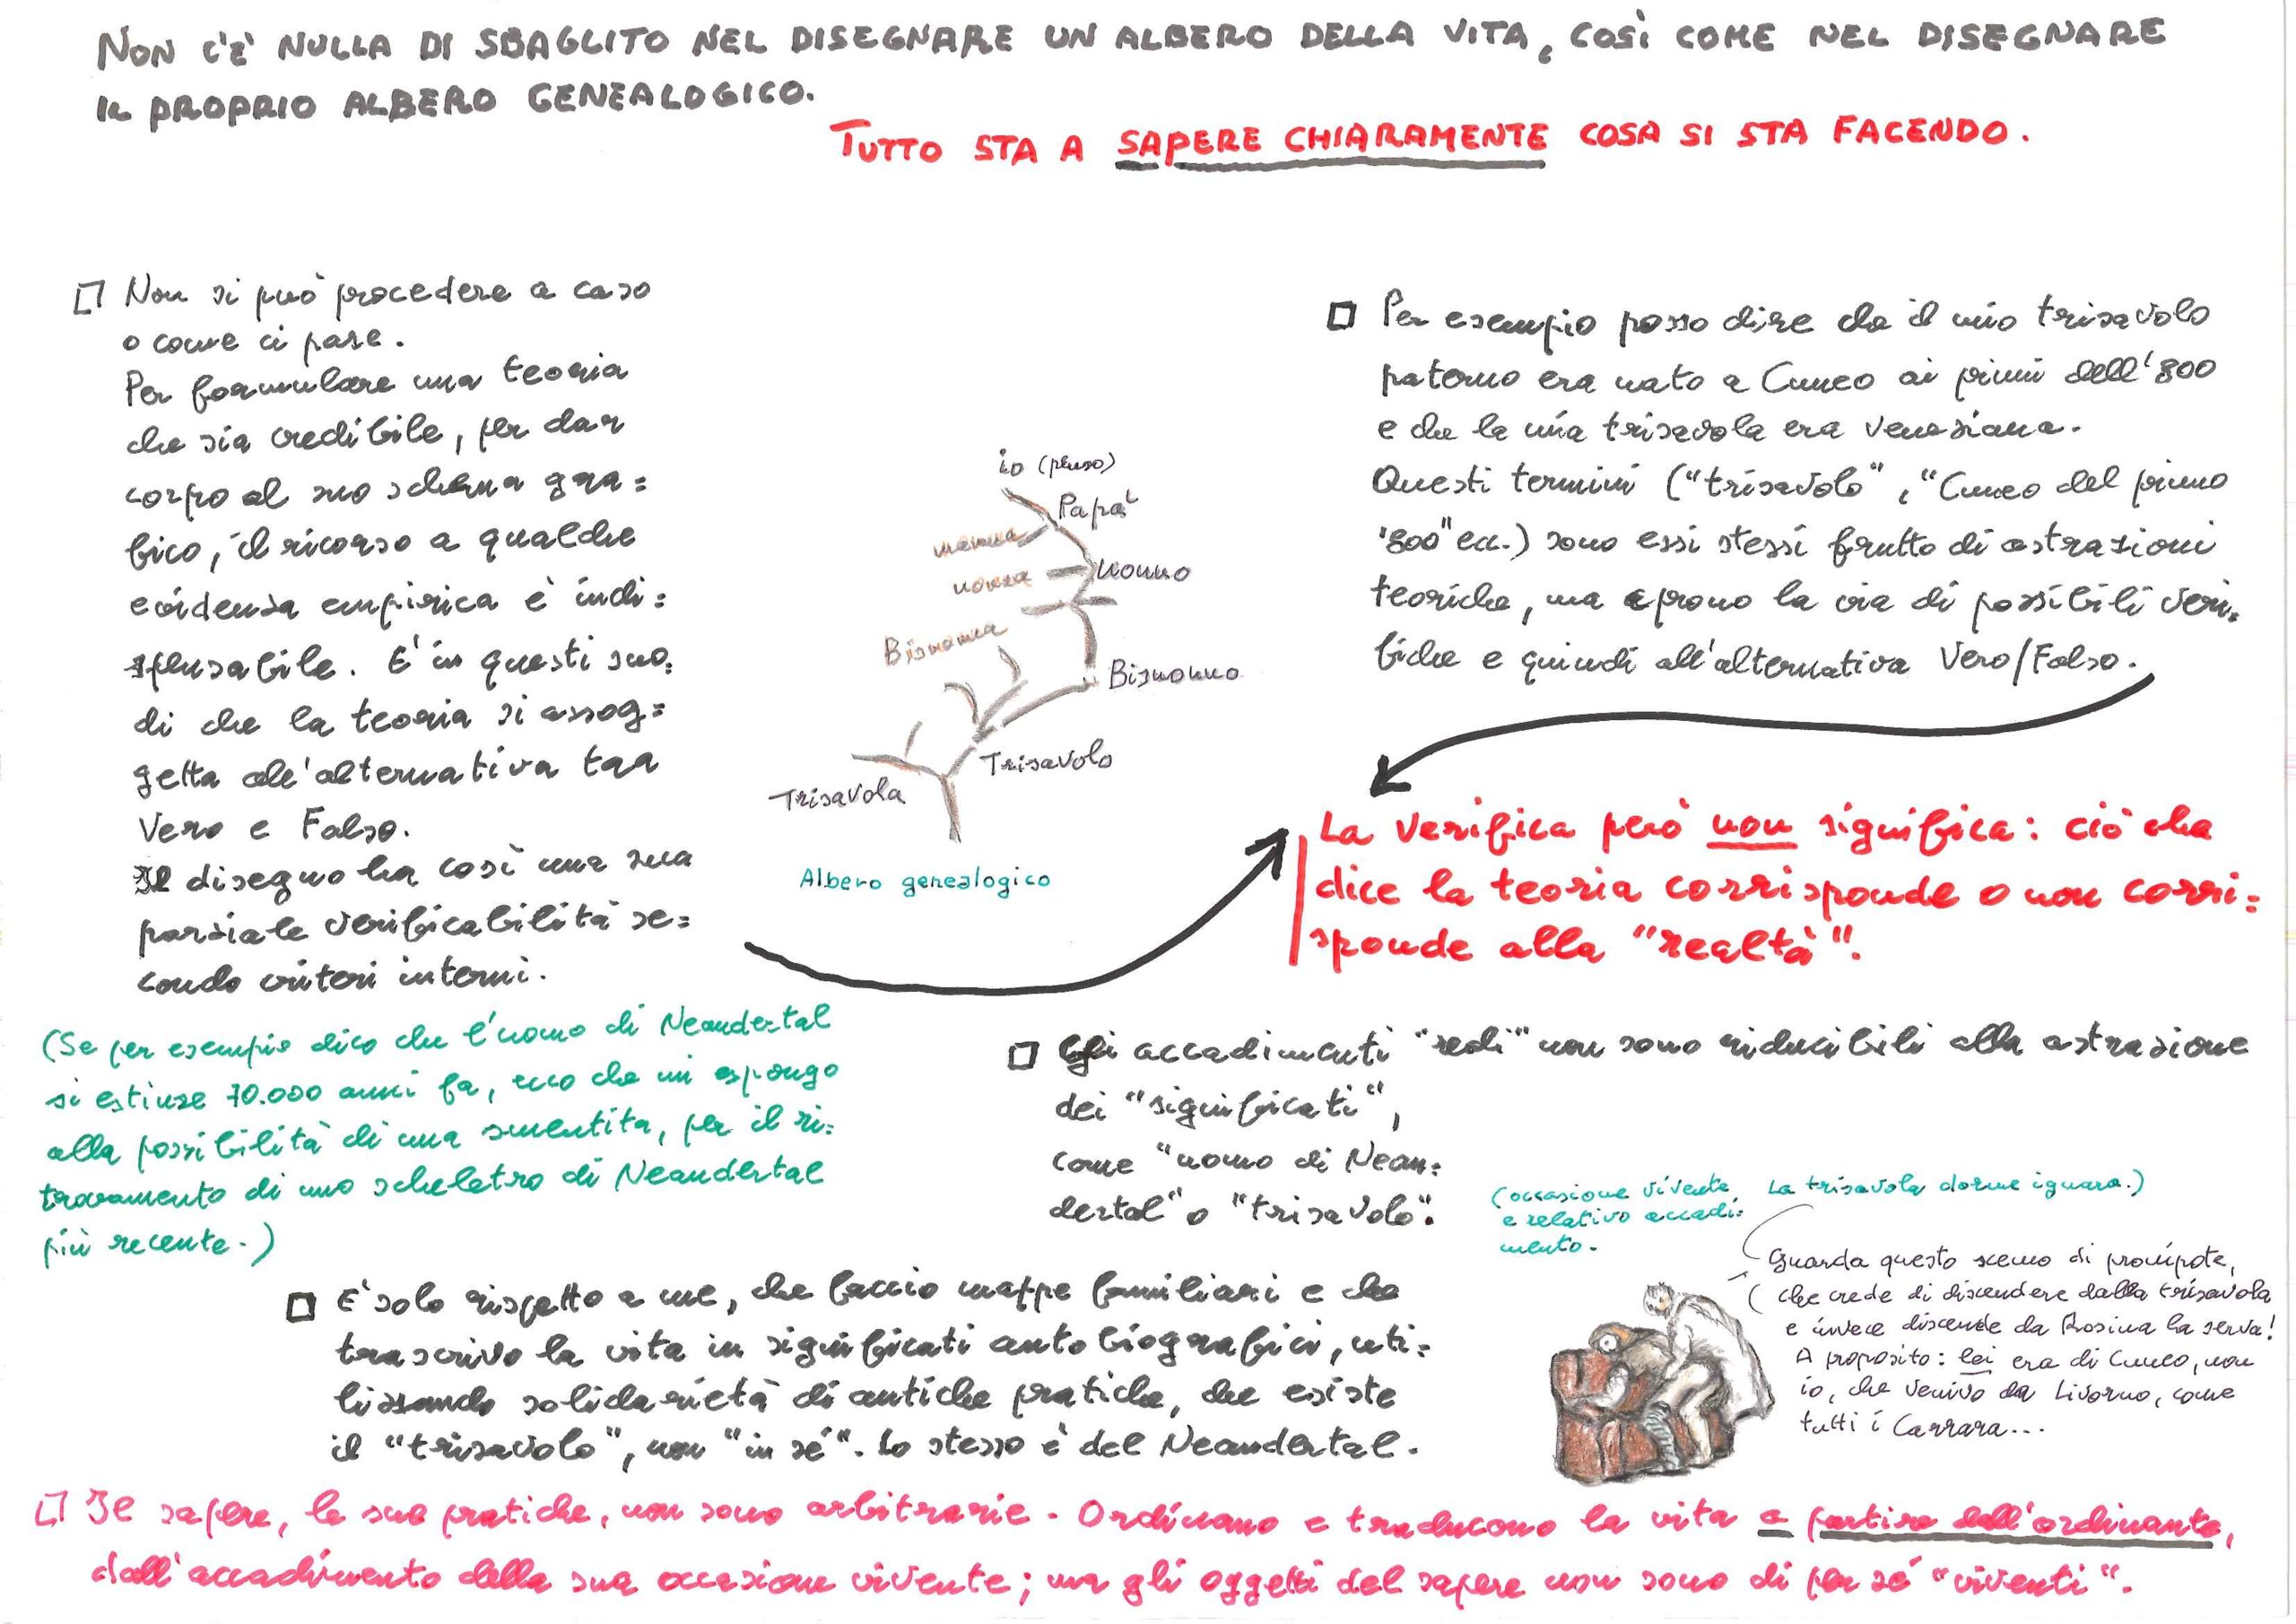 NON C'È NULLA DI SBAGLITO NEL DISEGNARE UN ALBERO DELLA VITA, COSÌ COME NEL DISEGNARE
IL PROPRIO ALBERO GENEALOGICO.
TUTTO STA A SAPERE CHIARAMENTE COSA SI STA FACENDO.
Non si può procedere a caso
o come ci pare.
Per formulare una teoria
che sia credibile, per dar
corpo al suo schema gra=
fico, il ricorso a qualche
evidenza empirica è indi=
spensabile. E' in questi suo.
di che la teoria si assog=
getta all'alternativa tra
Vero e Falso.
Il disegno ha così una sua
parziale verificabilità se=
condo criteri interni.
(Se per esempio dico che l'uomo di Neandertal
si estinse 70.000 anni fa, ecco che mi espongo
alla possibilità di una smentita, per il ri=
trovamento di uno scheletro di Neandertal
più recente.)
io (penso)
Papà
mamma
nonna
nonno
Bisnonna
Bisnonno
Trisavolo
Trisavola
Albero genealogico
Per esempio posso dire che il mio trisavolo
paterno era nato a Cuneo ai primi dell'800
e che la mia trisavola era veneziana.
Questi termini ("trisavolo", "Cuneo del primo
'800" ecc.) sono essi stessi frutto di astrazioni
teoriche, ma aprono la via di possibili veri=
fiche e quindi all'alternativa Vero/Falso.
La verifica però non significa: ciò che
dice la teoria corrisponde o non corri=
sponde alla "realtà".
Gli accadimenti "reali" non sono riducibili alla astrazione
dei "significati",
come "uomo di Nean=
dertal" o "trisavolo".
(occasione vivente
e relativo accadi=
mento.
La trisavola dorme ignara.)
Guarda questo scemo di pronipote,
che crede di discendere dalla trisavola
e invece discende da Rosina la serva!
A proposito: lei era di Cuneo, non
io, che venivo da Livorno, come
tutti i Carrara...
E' solo rispetto a me, che faccio mappe familiari e che
trascrivo la vita in significati autobiografici, uti=
lizzando solidarietà di antiche pratiche, che esiste
il "trisavolo", non "in sé". Lo stesso è del Neandertal.
Il sapere, le sue pratiche, non sono arbitrarie. Ordinano e traducono la vita a partire dall'ordinante,
dall'accadimento della sua occasione vivente; ma gli oggetti del sapere non sono di per sé "viventi".